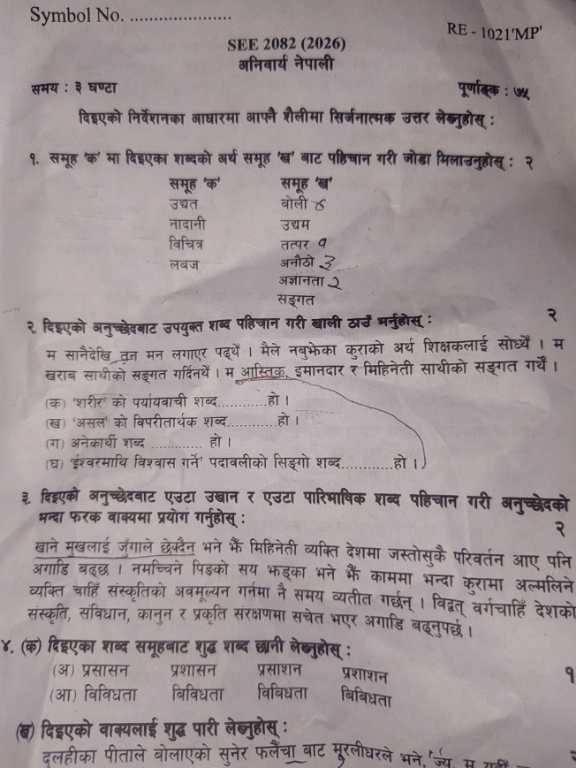 Symbol No. ......................
RE - 1021'MP'
SEE 2082 (2026)
अनिवार्य नेपाली
समय : ३ घण्टा
पूर्णाङ्क : ७५
दिइएको निर्देशनका आधारमा आफ्नै शैलीमा सिर्जनात्मक उत्तर लेख्नुहोस् :
१. समूह 'क' मा दिइएका शब्दको अर्थ समूह 'ख' बाट पहिचान गरी जोडा मिलाउनुहोस् : २
समूह 'क' समूह 'ख'
उद्यत बोली ४
नादानी उद्यम
विचित्र तत्पर १
लवज अनौठो ३
अज्ञानता २
सङ्गत
२. दिइएको अनुच्छेदबाट उपयुक्त शब्द पहिचान गरी खाली ठाउँ भर्नुहोस् : २
म सानैदेखि तन मन लगाएर पढ्थेँ । मैले नबुझेका कुराको अर्थ शिक्षकलाई सोध्थेँ । म
खराब साथीको सङ्गत गर्दिनथेँ । म आस्तिक, इमानदार र मिहिनेती साथीको सङ्गत गर्थेँ ।
(क) 'शरीर' को पर्यायवाची शब्द............हो ।
(ख) 'असल' को विपरीतार्थक शब्द............हो ।
(ग) अनेकार्थी शब्द ............ हो ।
(घ) 'ईश्वरमाथि विश्वास गर्ने' पदावलीको सिङ्गो शब्द............हो ।
३. दिइएको अनुच्छेदबाट एउटा उखान र एउटा पारिभाषिक शब्द पहिचान गरी अनुच्छेदको
भन्दा फरक वाक्यमा प्रयोग गर्नुहोस् : २
खाने मुखलाई जुँगाले छेक्दैन भने झैँ मिहिनेती व्यक्ति देशमा जस्तोसुकै परिवर्तन आए पनि
अगाडि बढ्छ । नमच्चिने पिङको सय झड्का भने झैँ काममा भन्दा कुरामा अल्मलिने
व्यक्ति चाहिँ संस्कृतिको अवमूल्यन गर्नमा नै समय व्यतीत गर्छन् । विद्वत् वर्गचाहिँ देशको
संस्कृति, संविधान, कानुन र प्रकृति संरक्षणमा सचेत भएर अगाडि बढ्नुपर्छ ।
४. (क) दिइएका शब्द समूहबाट शुद्ध शब्द छानी लेख्नुहोस् : १
(अ) प्रसासन प्रशासन प्रसाशन प्रशाशन
(आ) विविधता बिविधता विबिधता बिबिधता
(ख) दिइएको वाक्यलाई शुद्ध पारी लेख्नुहोस् :
दुलहीका पीताले बोलाएको सुनेर फलैँचा बाट मुरलीधरले भने,